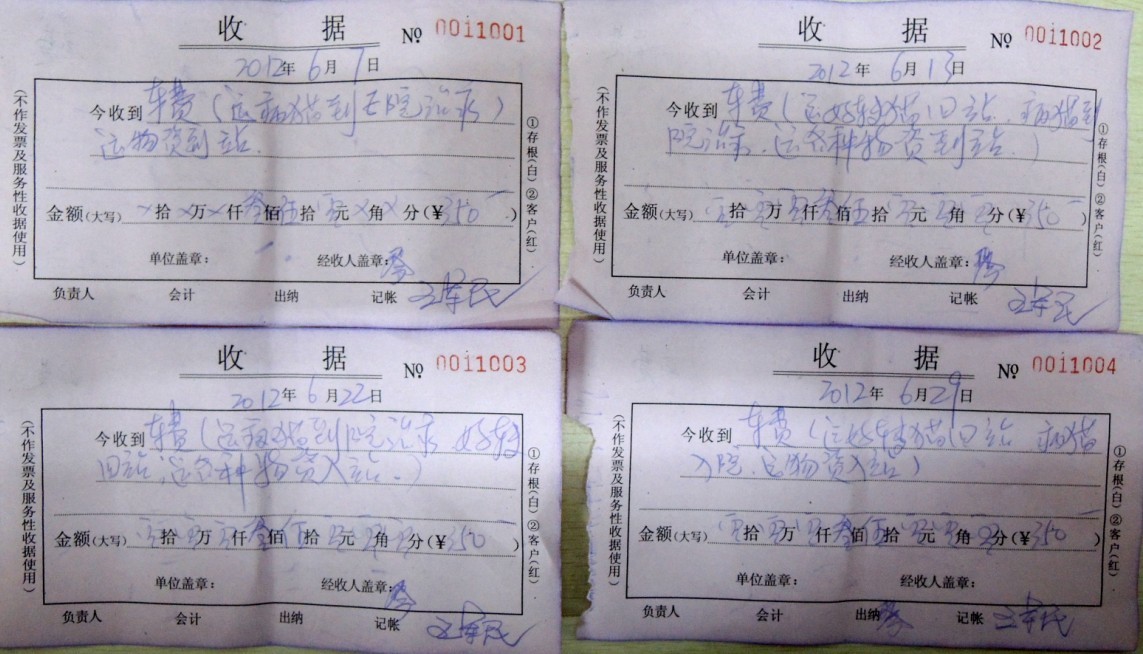 收 据 № 0011001
2012年 6月 7日
今收到 车费(运病猫到医院治疗)
运物资到站.
金额(大写) ×拾×万×仟叁佰伍拾零元×角×分(¥350)
单位盖章: 经收人盖章:
负责人 会计 出纳 记帐
(不作发票及服务性收据使用)
①存根(白)②客户(红)
收 据 № 0011002
2012年 6月 13日
今收到 车费(运好转猫回站、病猫到
院治疗、运各种物资到站.)
金额(大写) 零拾零万零仟叁佰伍拾零元零角零分(¥350)
单位盖章: 经收人盖章:
负责人 会计 出纳 记帐
(不作发票及服务性收据使用)
①存根(白)②客户(红)
收 据 № 0011003
2012年 6月 22日
今收到 车费(运病猫到院治疗 好转
回站,运各种物资入站.)
金额(大写) 零拾零万零仟叁佰伍拾零元零角零分(¥350)
单位盖章: 经收人盖章:
负责人 会计 出纳 记帐
(不作发票及服务性收据使用)
①存根(白)②客户(红)
收 据 № 0011004
2012年 6月 29日
今收到 车费(运好转猫回站 病猫
入院.运物资入站)
金额(大写) 零拾零万零仟叁佰伍拾零元零角零分(¥350)
单位盖章: 经收人盖章:
负责人 会计 出纳 记帐
(不作发票及服务性收据使用)
①存根(白)②客户(红)